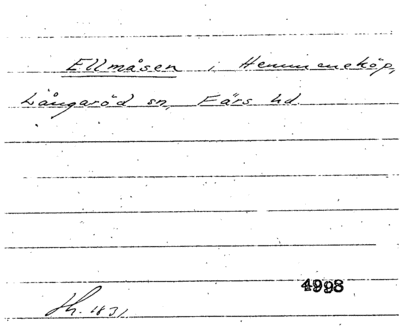 Ellmåsen, Hemmeneköp,
Långaröd sn, Färs hd
4998
Th. 1831